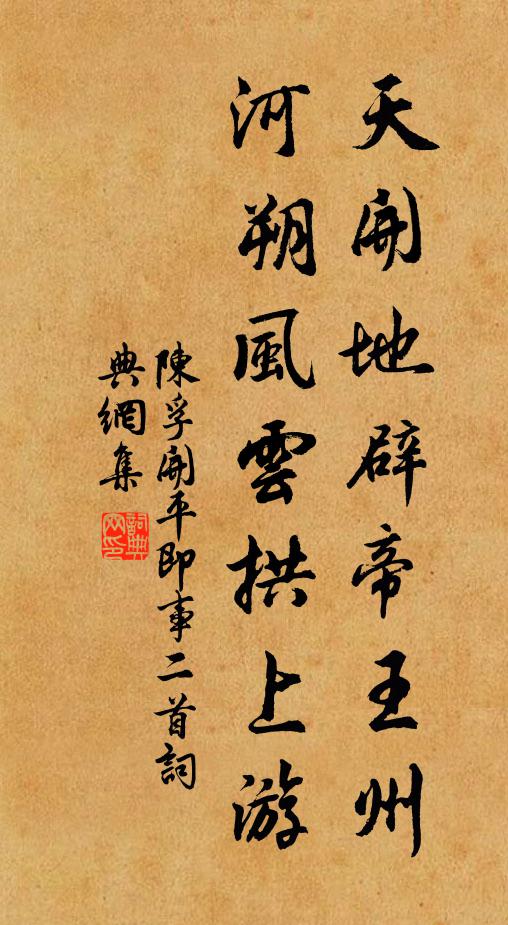 天開地辟帝王州
河朔風雲拱上游
陳孚開平即事二首詞
典網集
詞典
网印